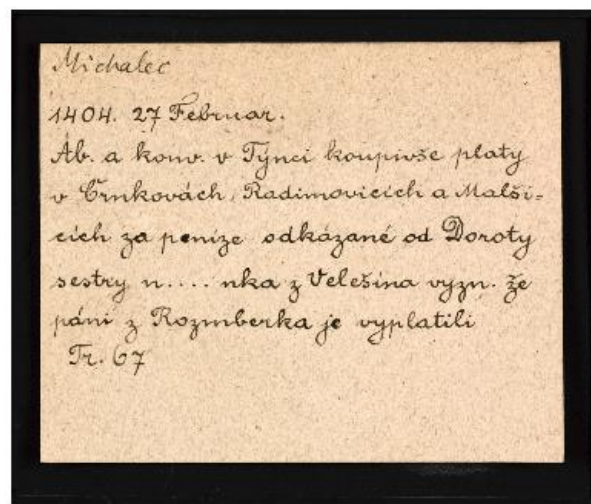 Michalec
1404. 27 Februar.
Ab. a konv. v Týnci koupivše platy
v Crnkovách, Radimovicích a Malši-
cích za peníze odkázané od Doroty
sestry n.... nka z Velešína vyzn. že
páni z Rozmberka je vyplatili
Tr. 67